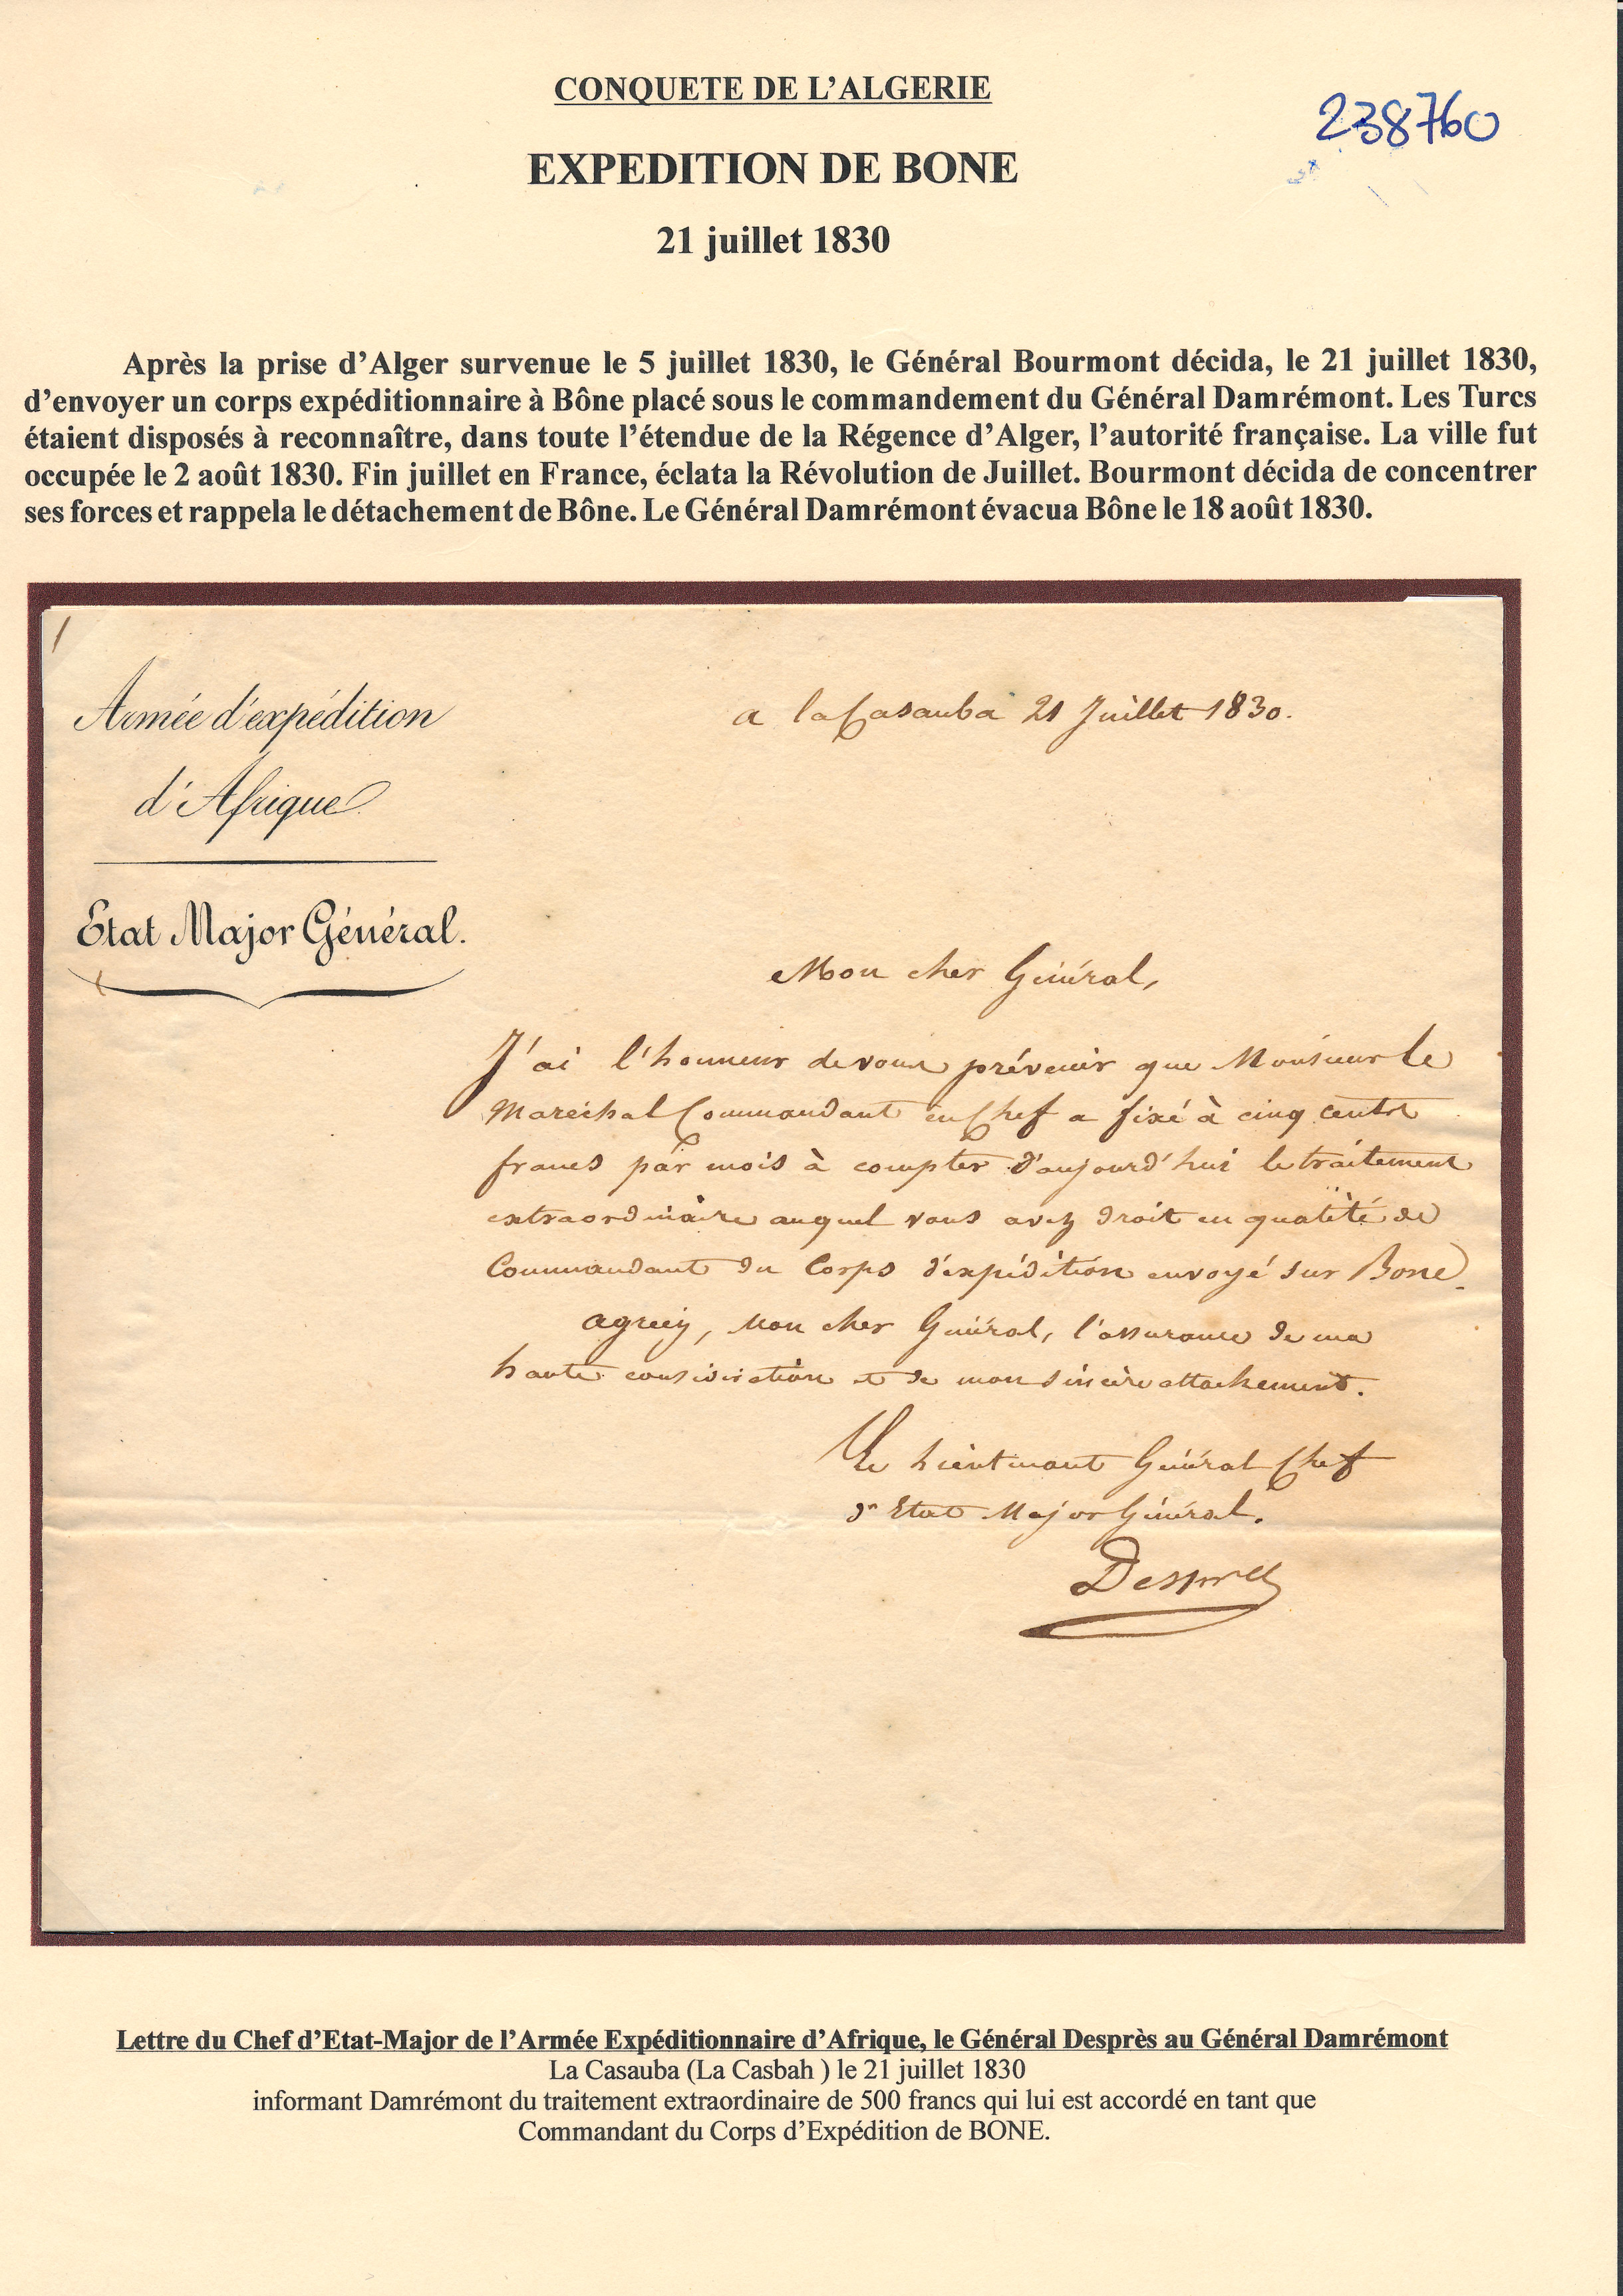 CONQUETE DE L'ALGERIE
238760
EXPEDITION DE BONE
21 juillet 1830
Après la prise d'Alger survenue le 5 juillet 1830, le Général Bourmont décida, le 21 juillet 1830,
d'envoyer un corps expéditionnaire à Bône placé sous le commandement du Général Damrémont. Les Turcs
étaient disposés à reconnaître, dans toute l'étendue de la Régence d'Alger, l'autorité française. La ville fut
occupée le 2 août 1830. Fin juillet en France, éclata la Révolution de Juillet. Bourmont décida de concentrer
ses forces et rappela le détachement de Bône. Le Général Damrémont évacua Bône le 18 août 1830.
Armée d'expédition
d'Afrique
Etat Major Général.
a la Casauba 21 Juillet 1830.
Mon cher Général,
J'ai l'honneur de vous prévenir que Monsieur le
Maréchal Commandant en Chef a fixé à cinq cents
francs par mois à compter d'aujourd'hui le traitement
extraordinaire auquel vous avez droit en qualité de
Commandant du Corps d'expédition envoyé sur Bone.
agreez, Mon cher Général, l'assurance de ma
haute considération et de mon sincère attachement.
Le Lieutenant Général Chef
d'Etat Major Général.
Desprez
Lettre du Chef d'Etat-Major de l'Armée Expéditionnaire d'Afrique, le Général Desprès au Général Damrémont
La Casauba (La Casbah ) le 21 juillet 1830
informant Damrémont du traitement extraordinaire de 500 francs qui lui est accordé en tant que
Commandant du Corps d'Expédition de BONE.